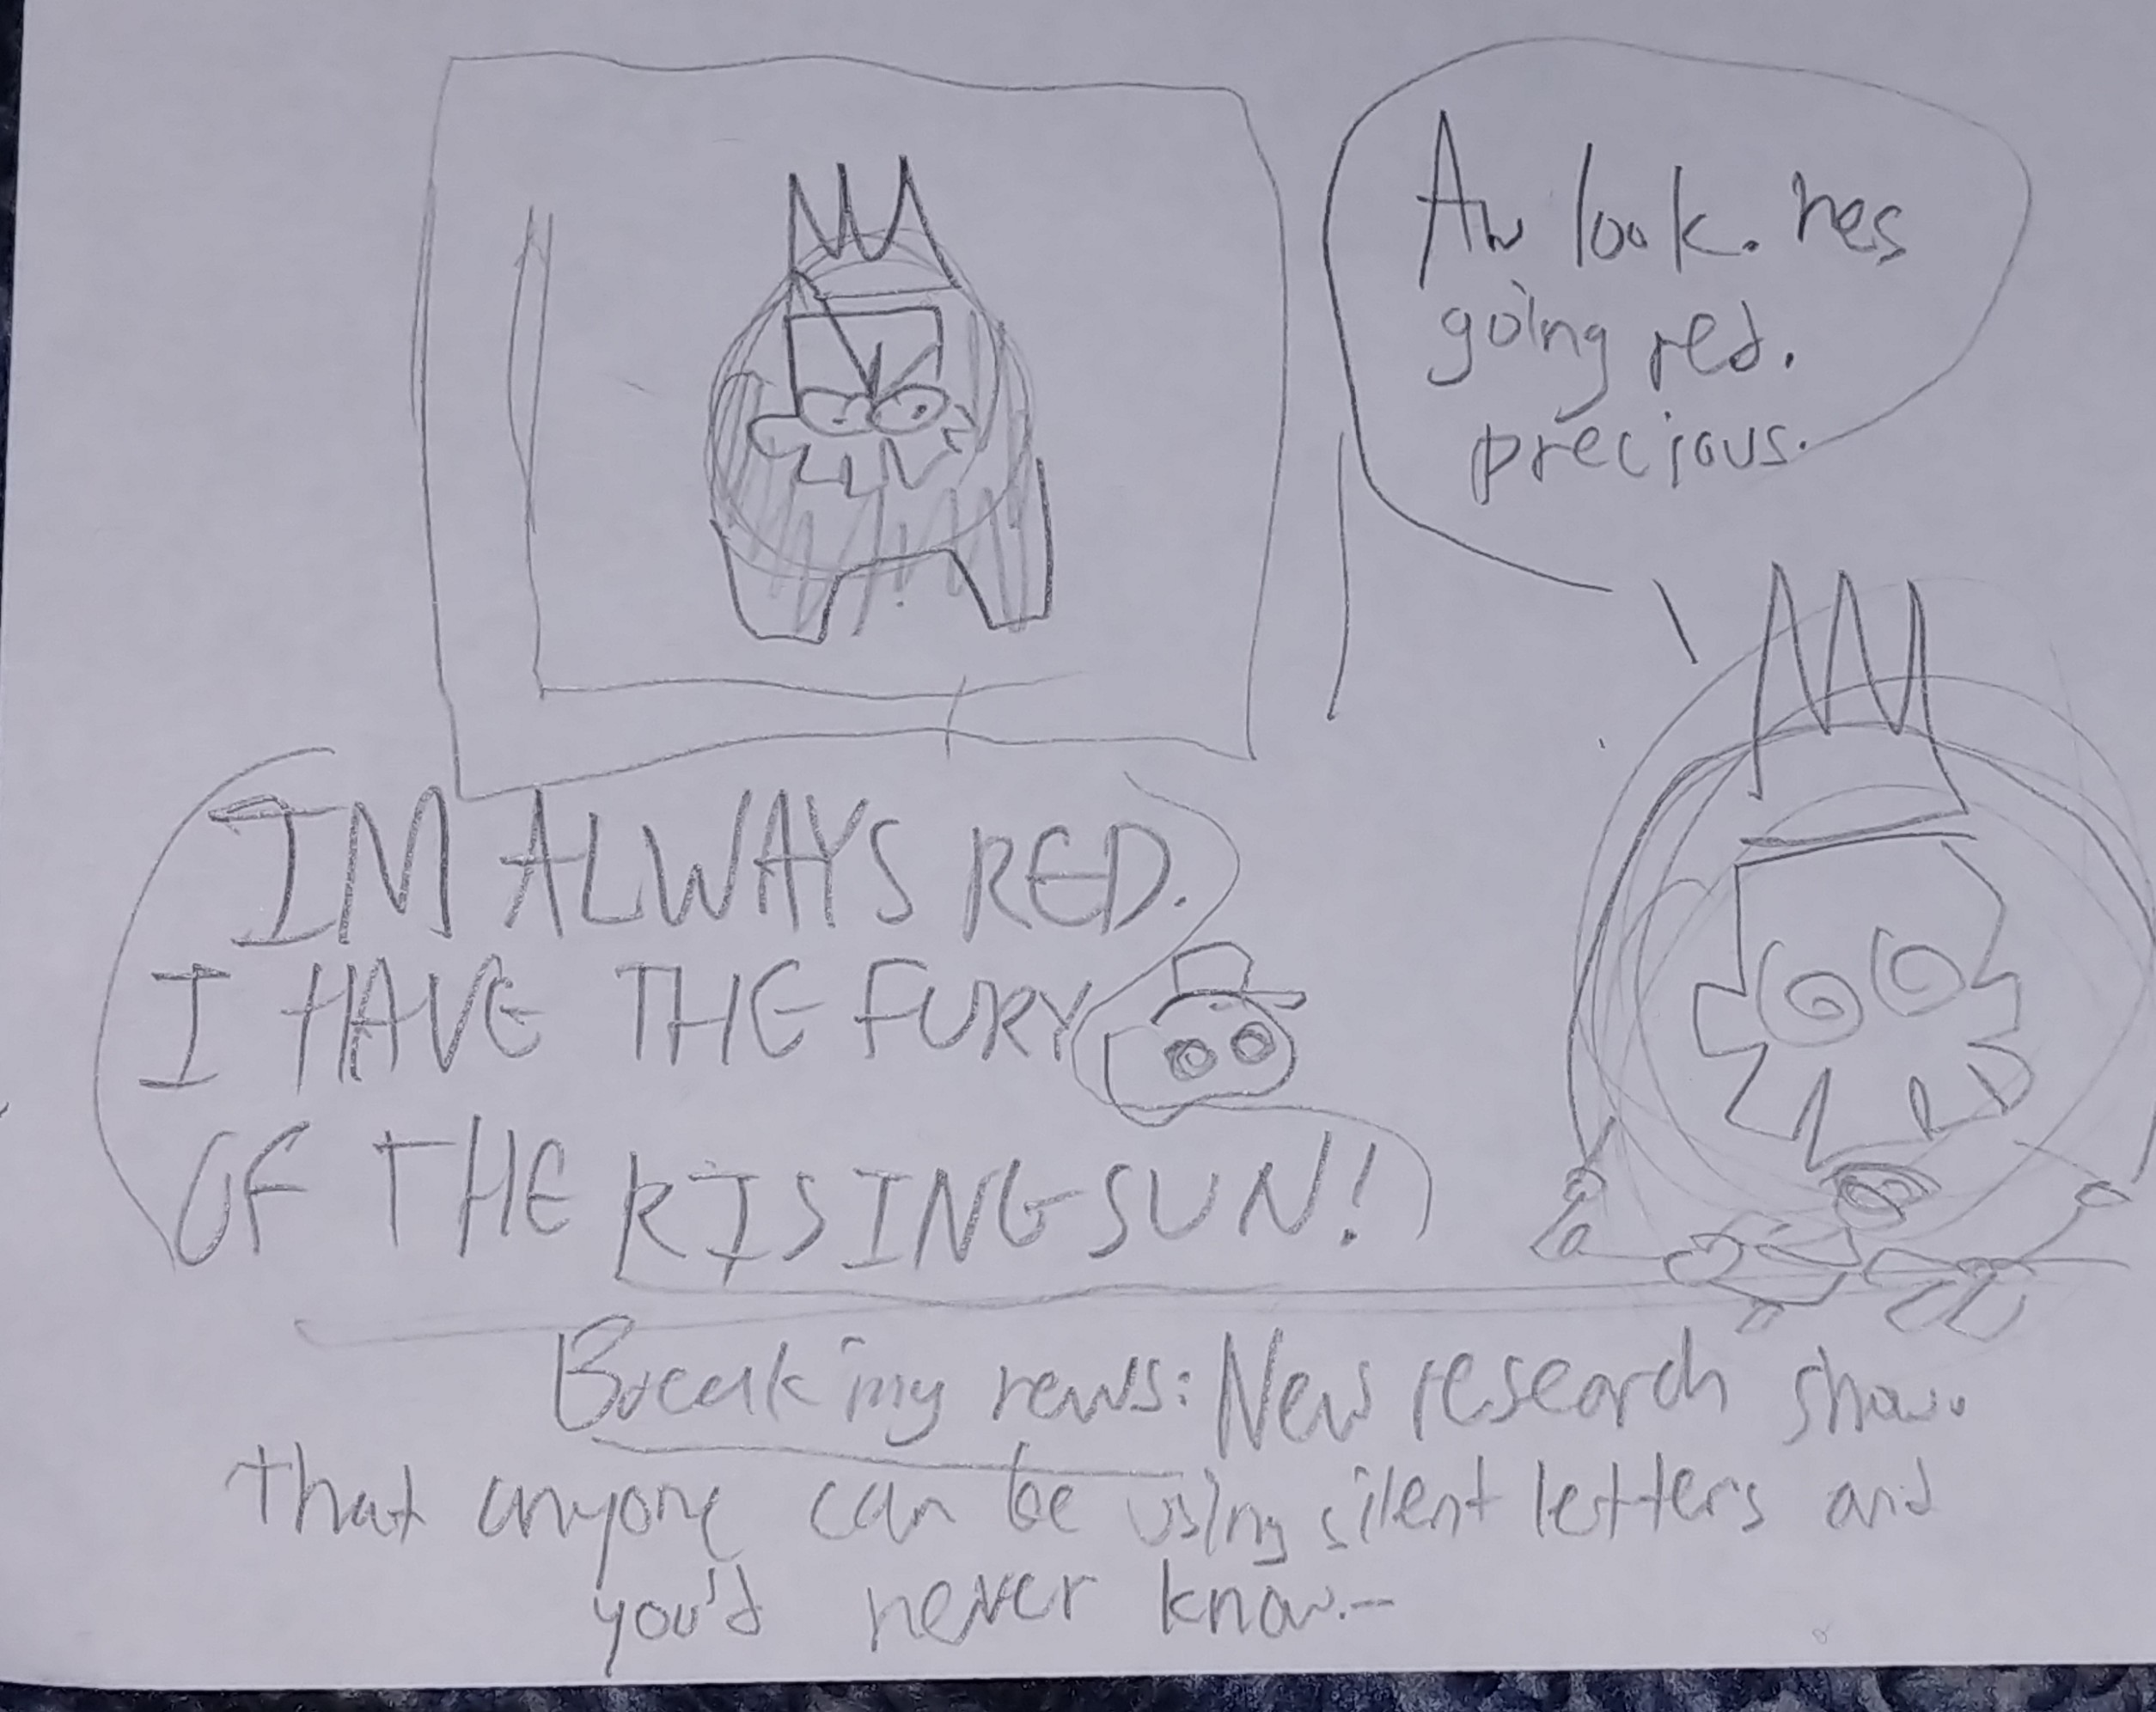 Aw look. hes
going red.
precious.
IM ALWAYS RED.
I HAVE THE FURY
OF THE RISING SUN!
Breaking news: New research show.
that anyone can be using silent letters and
you'd never know.-